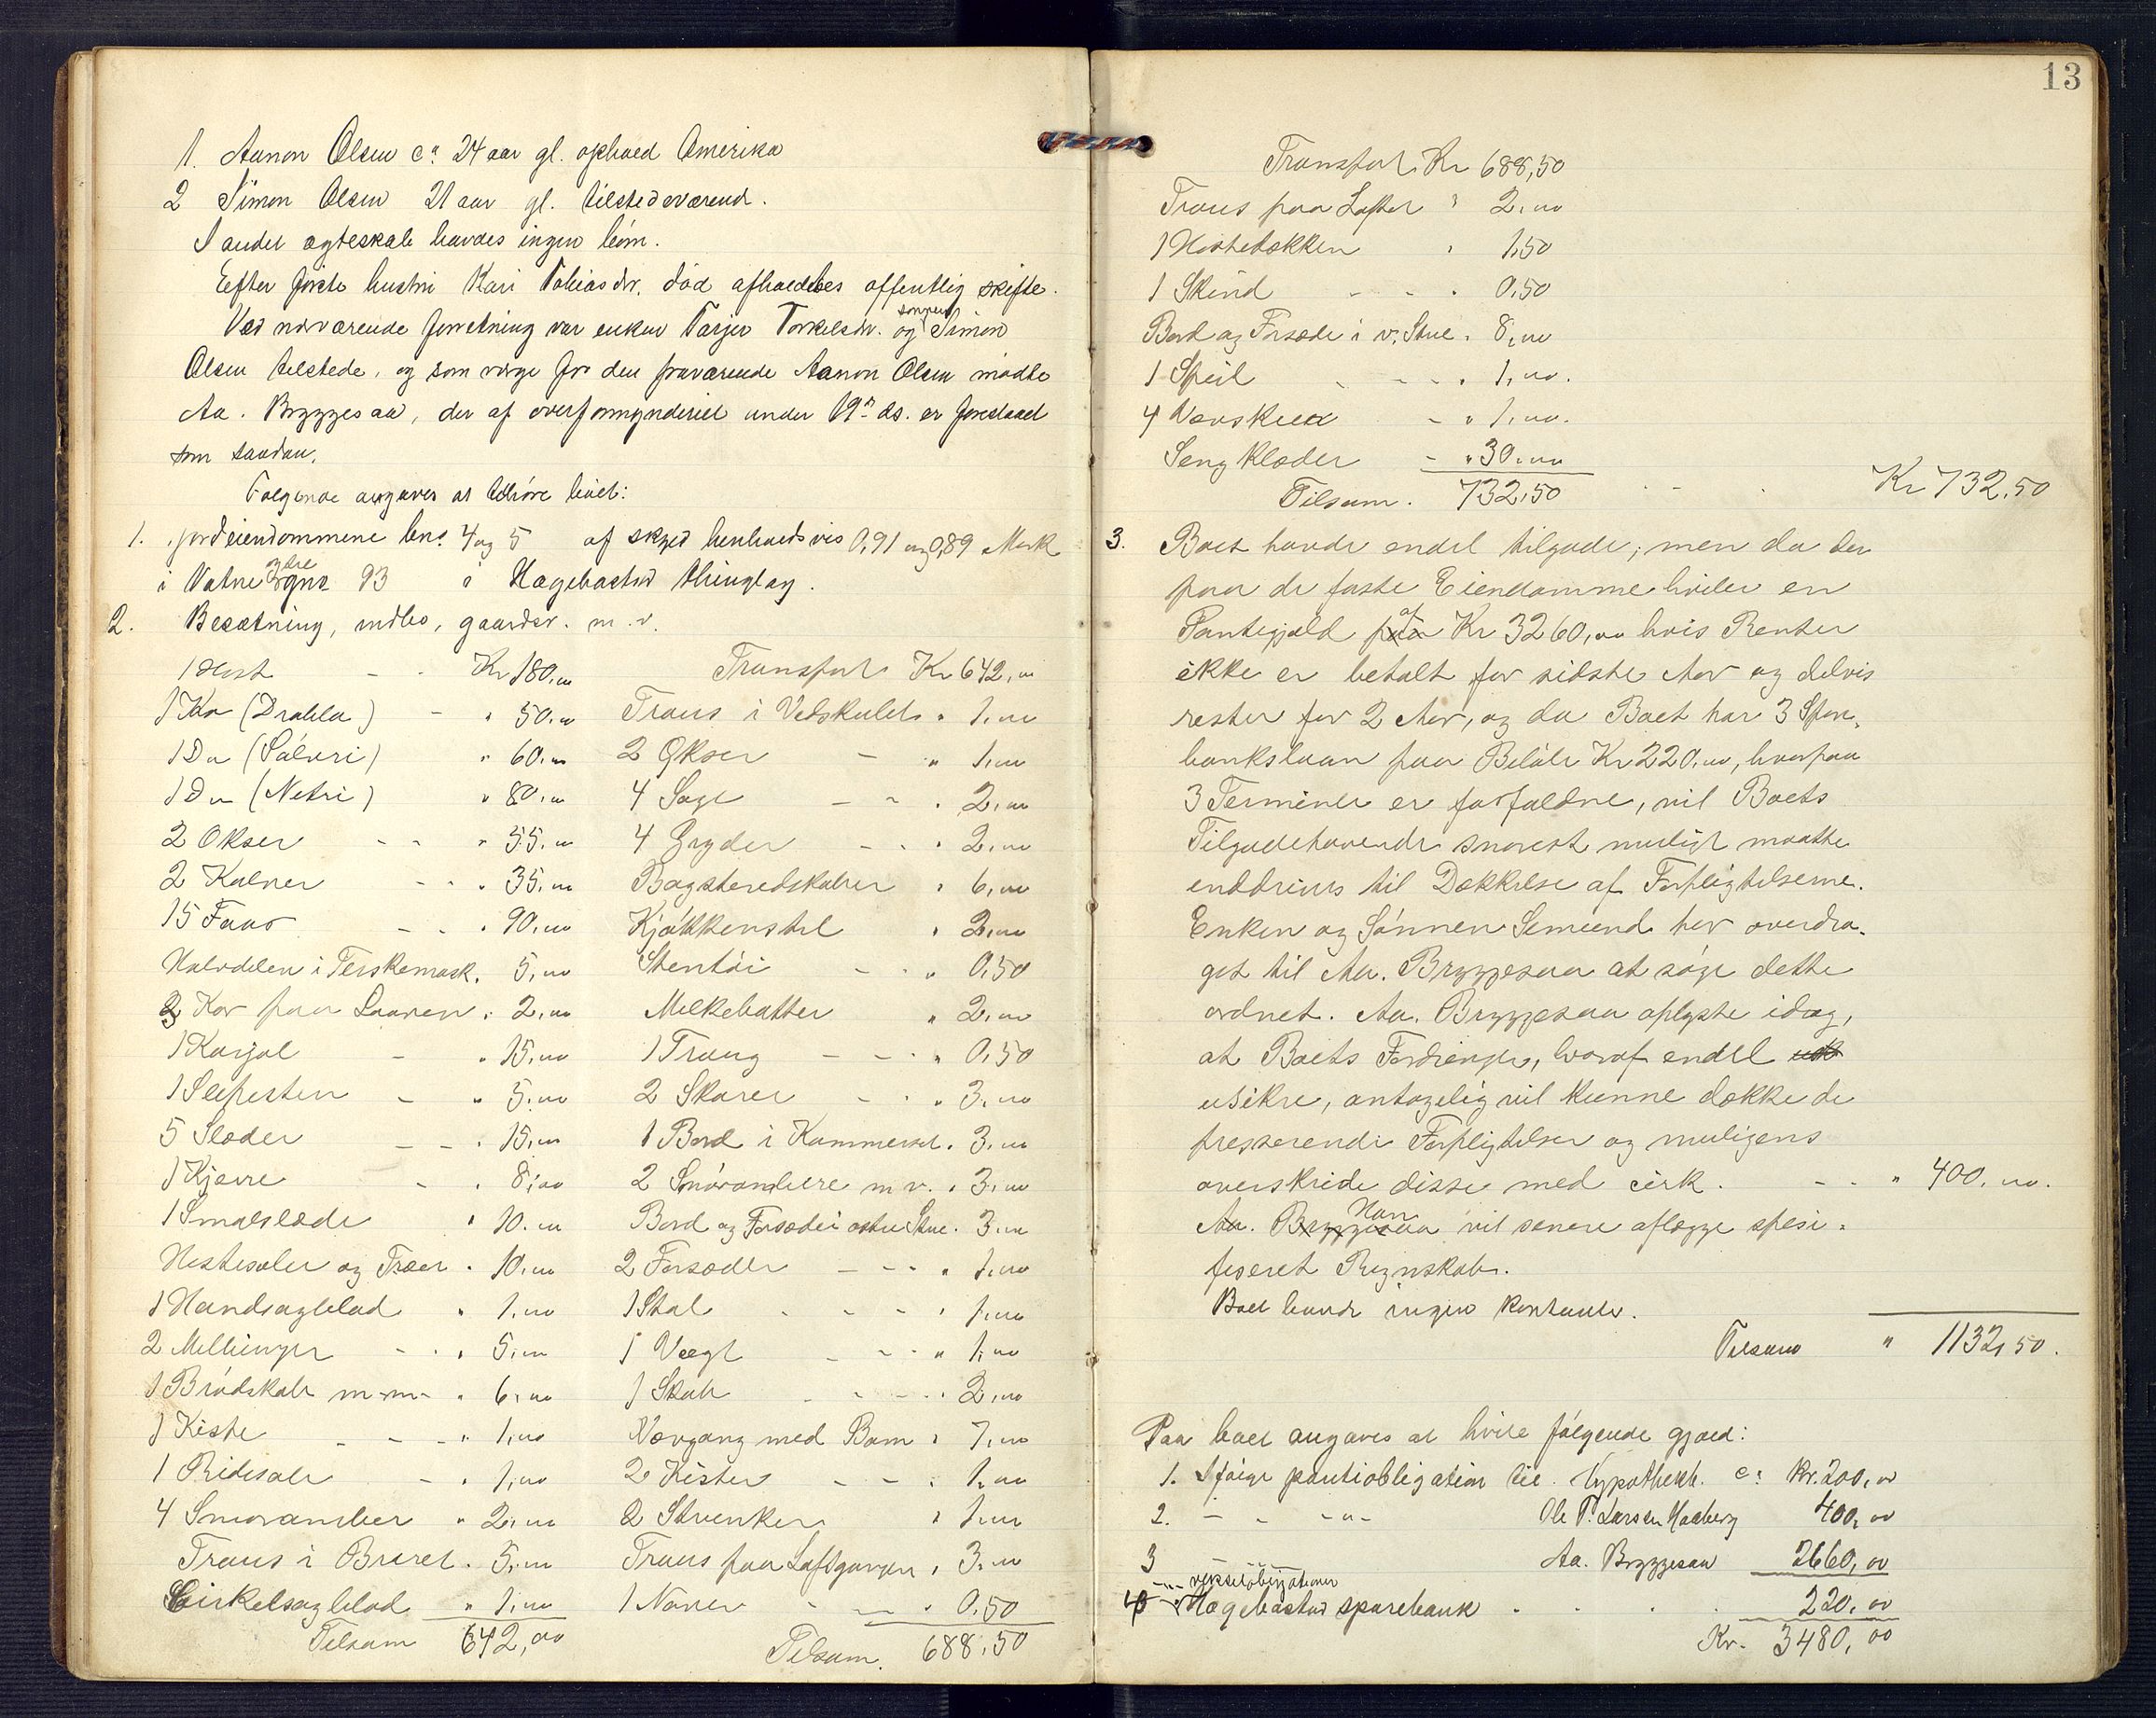 1. Aanon Olsen ca 24 aar gl. ophold Amerika
2 Simon Olsen 21 aar gl. tilstedeværend.
I andet ægteskab havdes ingen børn.
Efter første hustru Kari Tobiasdr. død afholdtes offentlig skifte.
Ved nærværende forretning var enken Tarjer Torkelsdr. og sønnen Simon
Olsen tilstede, og som værge for den fraværende Aanon Olsen mødte
Aa. Bryggesaa, der af overformynderiet under 19de ds. er foreslaaet
som saadan.
Følgende angaves at tilhøre boet:
1. Jordeiendommene bno. 4 og 5 af skyld henholdsvis 0,91 og 0,89 Mark
i Vatne gno 93 i Hægebostad thinglag.
2. Besætning, indbo, gaardsr. m.v.
1 Hest - - Kr 180,00
1 Ko (Drabla) - " 50,00
1 Do (Sølvri) " 60,00
1 Do (Netri) " 80,00
2 Okser - - " 55,00
2 Kalver - - " 35,00
15 Faar - - " 90,00
Halvdelen i Terskemask. 5,00
2 Kar paa Laaven " 2,00
1 Karjol - " 15,00
1 Slipesten - " 5,00
5 Slæder - - " 15,00
1 Kjærre - " 8,00
1 Smalslæde " 10,00
Hestesæler og Træer " 10,00
1 Handsagblad " 1,00
2 Mellinger - - " 5,00
1 Brødskab m.m. " 6,00
1 Kiste - - - " 1,00
1 Ridesale - " 1,00
4 Smørambær " 2,00
Traus i Buret " 5,00
Cirkelsagblad " 1,00
Tilsam 642,00
Transport Kr 642,00
Traus i Vedskulet " 1,00
2 Økser - " 1,00
4 Sage - - " 2,00
4 Gryder - - " 2,00
Bagsteredskaber " 6,00
Kjøkkenstel " 2,00
Stentøi - - " 0,50
Melkebøtter " 2,00
1 Traug - - " 0,50
2 Skarer - - " 3,00
1 Bord i Kammerset " 3,00
2 Smørambere m.v. " 3,00
Bord og Forsæde i østre Stue " 3,00
2 Forsæder - - " 1,00
1 Stol - - " 1,00
1 Vægt - - " 1,00
1 Skab - - " 2,00
Vævgang med Bom " 7,00
2 Kister - - " 1,00
2 Strenker " 1,00
Traus paa Loftgaven " 3,00
1 Naver - - " 0,50
Tilsam. 688,50
13
Transport Kr 688,50
Traus paa Loftet " 2,00
1 Hestedækken " 1,50
1 Skind - - " 0,50
Bord og Forsæde i v. Stue " 8,00
1 Speil - - " 1,00.
4 Vævskeer - " 1,00.
Sengklæder - " 30,00
Tilsam. 732,50 - - Kr 732,50
3. Boet havde endel tilgode, men da der
paa de faste Eiendomme hviler en
Pantegjæld af Kr 3260,00 hvis Renter
ikke er betalt for sidste Aar og delvis
rester for 2 Aar, og da Boet har 3 Spare-
bankslaan paa Beløb Kr 220,00, hvorpaa
3 Terminer er forfaldne, vil Boets
Tilgodehavende snarest muligt maatte
inddrives til Dækkelse af Forpligtelserne.
Enken og Sønnen Simund har overdra-
get til Aa. Bryggesaa at søge dette
ordnet. Aa. Bryggesaa oplyste idag,
at Boets Fordringer, hvoraf endel
usikre, antagelig vil kunne dække de
presserende Forpligtelser og muligens
overskride disse med cirk. - - " 400,00.
Han vil senere aflægge spesi-
fiseret Regnskab.
Boet havde ingen kontanter.
Tilsam " 1132,50.
Paa boet angaves at hvile følgende gjæld:
1. Ifølge pantobligation til Hypothekb. ca Kr. 200,00
2. - - -"- Ole T. Larsen Hadberg 400,00
3 - - - Aa. Bryggesaa 2660,00
-"- vexelobligationer
4 Hægebostad sparebank . . . 220,00
Kr. 3480,00